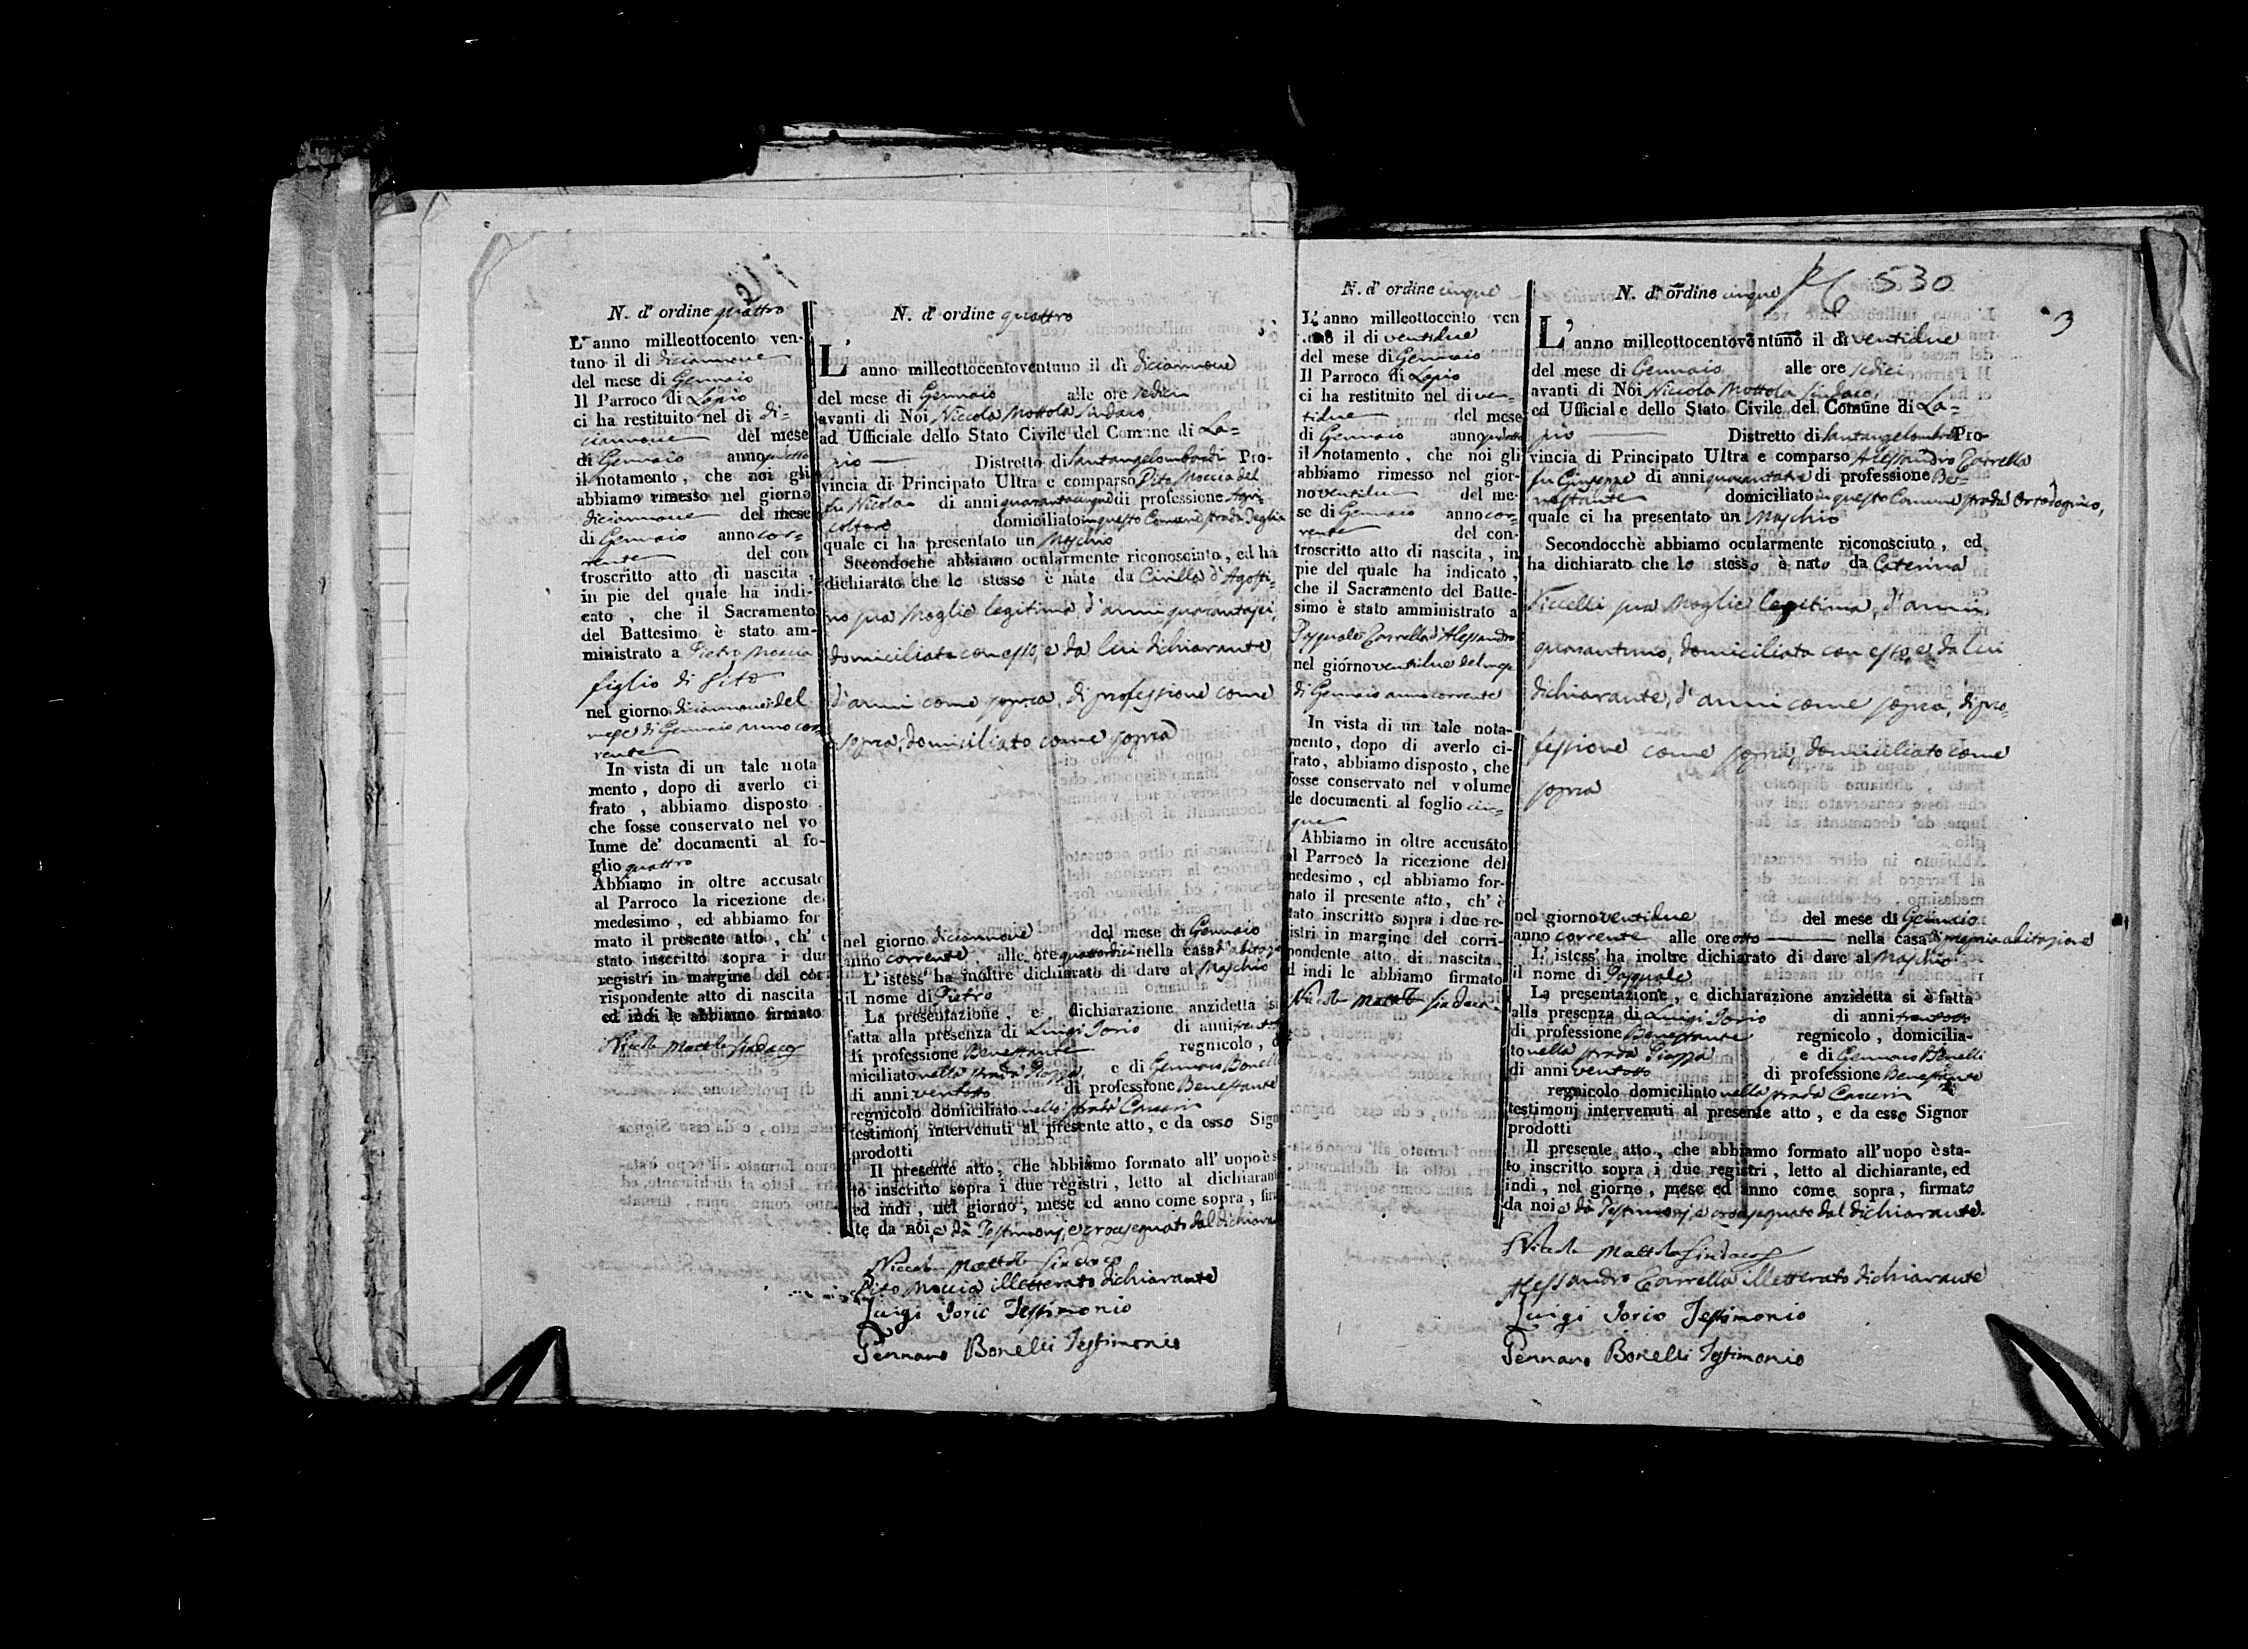 N. d' ordine quattro
L' anno milleottocento ven-
tuno il di diciannove
del mese di Gennaio
Il Parroco di Lapio
ci ha restituito nel di di-
ciannove del mese
di Gennaio anno
il notamento, che noi gli
abbiamo rimesso nel giorno
diciannove del mese
di Gennaio anno cor-
rente del con
troscritto atto di nascita,
in pie del quale ha indi-
cato, che il Sacramento
del Battesimo è stato am-
ministrato a Pietro Moccia
figlio di Vito
nel giorno diciannove del
mese di Gennaio anno cor-
rente
In vista di un tale nota
mento, dopo di averlo ci
frato, abbiamo disposto
che fosse conservato nel vo
lume de' documenti al fo-
glio quattro
Abbiamo in oltre accusato
al Parroco la ricezione de
medesimo, ed abbiamo for
mato il presente atto, ch'
stato inscritto sopra i due
registri in margine del cor
rispondente atto di nascita
ed indi le abbiamo firmato
Niccola Mottola Sindaco
N. d' ordine quattro
L' anno milleottocentoventuno il dì diciannove
del mese di Gennaio alle ore sedici
avanti di Noi Niccola Mottola Sindaco
ad Ufficiale dello Stato Civile del Comune di La-
pio Distretto di Santangelombardi Pro-
vincia di Principato Ultra e comparso Vito Moccia del
fu Nicola di anni quarantacinque di professione Agri-
coltore domiciliato in questo Comune strada Teglia
quale ci ha presentato un Maschio
Secondochè abbiamo ocularmente riconosciuto, ed ha
dichiarato che lo stesso è nato da Civilla d'Agosti-
no sua Moglie legitima, d'anni quarantasei,
domiciliata con esso, e da lui dichiarante,
d'anni come sopra, di professione come
sopra, domiciliato come sopra
nel giorno diciannove del mese di Gennaio
anno corrente alle ore quattordici nella casa d'abitazio
L' istess' ha inoltre dichiarato di dare al Maschio
il nome di Pietro
La presentazione, e dichiarazione anzidetta si
fatta alla presenza di Luigi Iorio di anni trentotto
di professione Benestante regnicolo, d
miciliato nella strada Piazza, e di Gennaro Bonelli
di anni ventotto di professione Benestante
regnicolo domiciliato nella strada Carceri
testimonj intervenuti al presente atto, e da esso Sign
prodotti
Il presente atto, che abbiamo formato all' uopo è s
to inscritto sopra i due registri, letto al dichiarant
ed indi, nel giorno, mese ed anno come sopra, firm
te da noi, e dà Testimonj, e crocesegnato dal dichiaran
Niccola Mottola Sindaco
Vito Moccia illetterato dichiarante
Luigi Iorio Testimonio
Gennaro Bonelli Testimonio
N. d' ordine cinque
L' anno milleottocento ven
il di ventidue
del mese di Gennaio
Il Parroco di Lapio
ci ha restituito nel di ven-
tidue del mese
di Gennaio anno
il notamento, che noi gli
abbiamo rimesso nel gior-
no ventidue del me-
se di Gennaio anno cor-
rente del con-
troscritto atto di nascita, in
pie del quale ha indicato,
che il Sacramento del Batte-
simo è stato amministrato a
Pasquale Carrella d'Alessandro
nel giorno ventidue del mese
di Gennaio anno corrente
In vista di un tale nota-
mento, dopo di averlo ci-
frato, abbiamo disposto, che
fosse conservato nel volume
de documenti al foglio cin-
que
Abbiamo in oltre accusato
al Parroco la ricezione del
medesimo, ed abbiamo for-
mato il presente atto, ch' è
tato inscritto sopra i due re-
gistri in margine del corri-
pondente atto di nascita,
d indi le abbiamo firmato
Niccola Mottola Sindaco
530
3
N. d' ordine cinque
L' anno milleottocentoventuno il di ventidue
del mese di Gennaio alle ore sedici
avanti di Noi Niccola Mottola Sindaco,
ed Ufficiale dello Stato Civile del Comune di La-
pio Distretto di Santangelombardi Pro-
vincia di Principato Ultra e comparso Alessandro Carrella
fu Giuseppe di anni quarantatre di professione Be-
nestante domiciliato in questo Comune strada Ortodoguico,
quale ci ha presentato un Maschio
Secondocchè abbiamo ocularmente riconosciuto, ed
ha dichiarato che lo stesso è nato da Caterina
sua Moglie legitima, d'anni
quarantuno, domiciliata con esso, e da lui
dichiarante, d'anni come sopra, di pro-
fessione come sopra, domiciliato come
sopra
nel giorno ventidue del mese di Gennaio
anno corrente alle ore otto nella casa di propria abitazione
L' istess' ha inoltre dichiarato di dare al Maschio
il nome di Pasquale
La presentazione, e dichiarazione anzidetta si è fatta
alla presenza di Luigi Iorio di anni trentotto
di professione Benestante regnicolo, domicilia-
to nella strada Piazza e di Gennaro Bonelli
di anni ventotto di professione Benestante
regnicolo domiciliato nella strada Carceri
testimonj intervenuti al presente atto, e da esso Signor
prodotti
Il presente atto, che abbiamo formato all'uopo è sta-
to inscritto sopra i due registri, letto al dichiarante, ed
indi, nel giorno, mese ed anno come sopra, firmato
da noi e dà Testimonj, e crocesegnato dal dichiarante.
Niccola Mottola Sindaco
Alessandro Carrella illetterato dichiarante
Luigi Iorio Testimonio
Gennaro Bonelli Testimonio